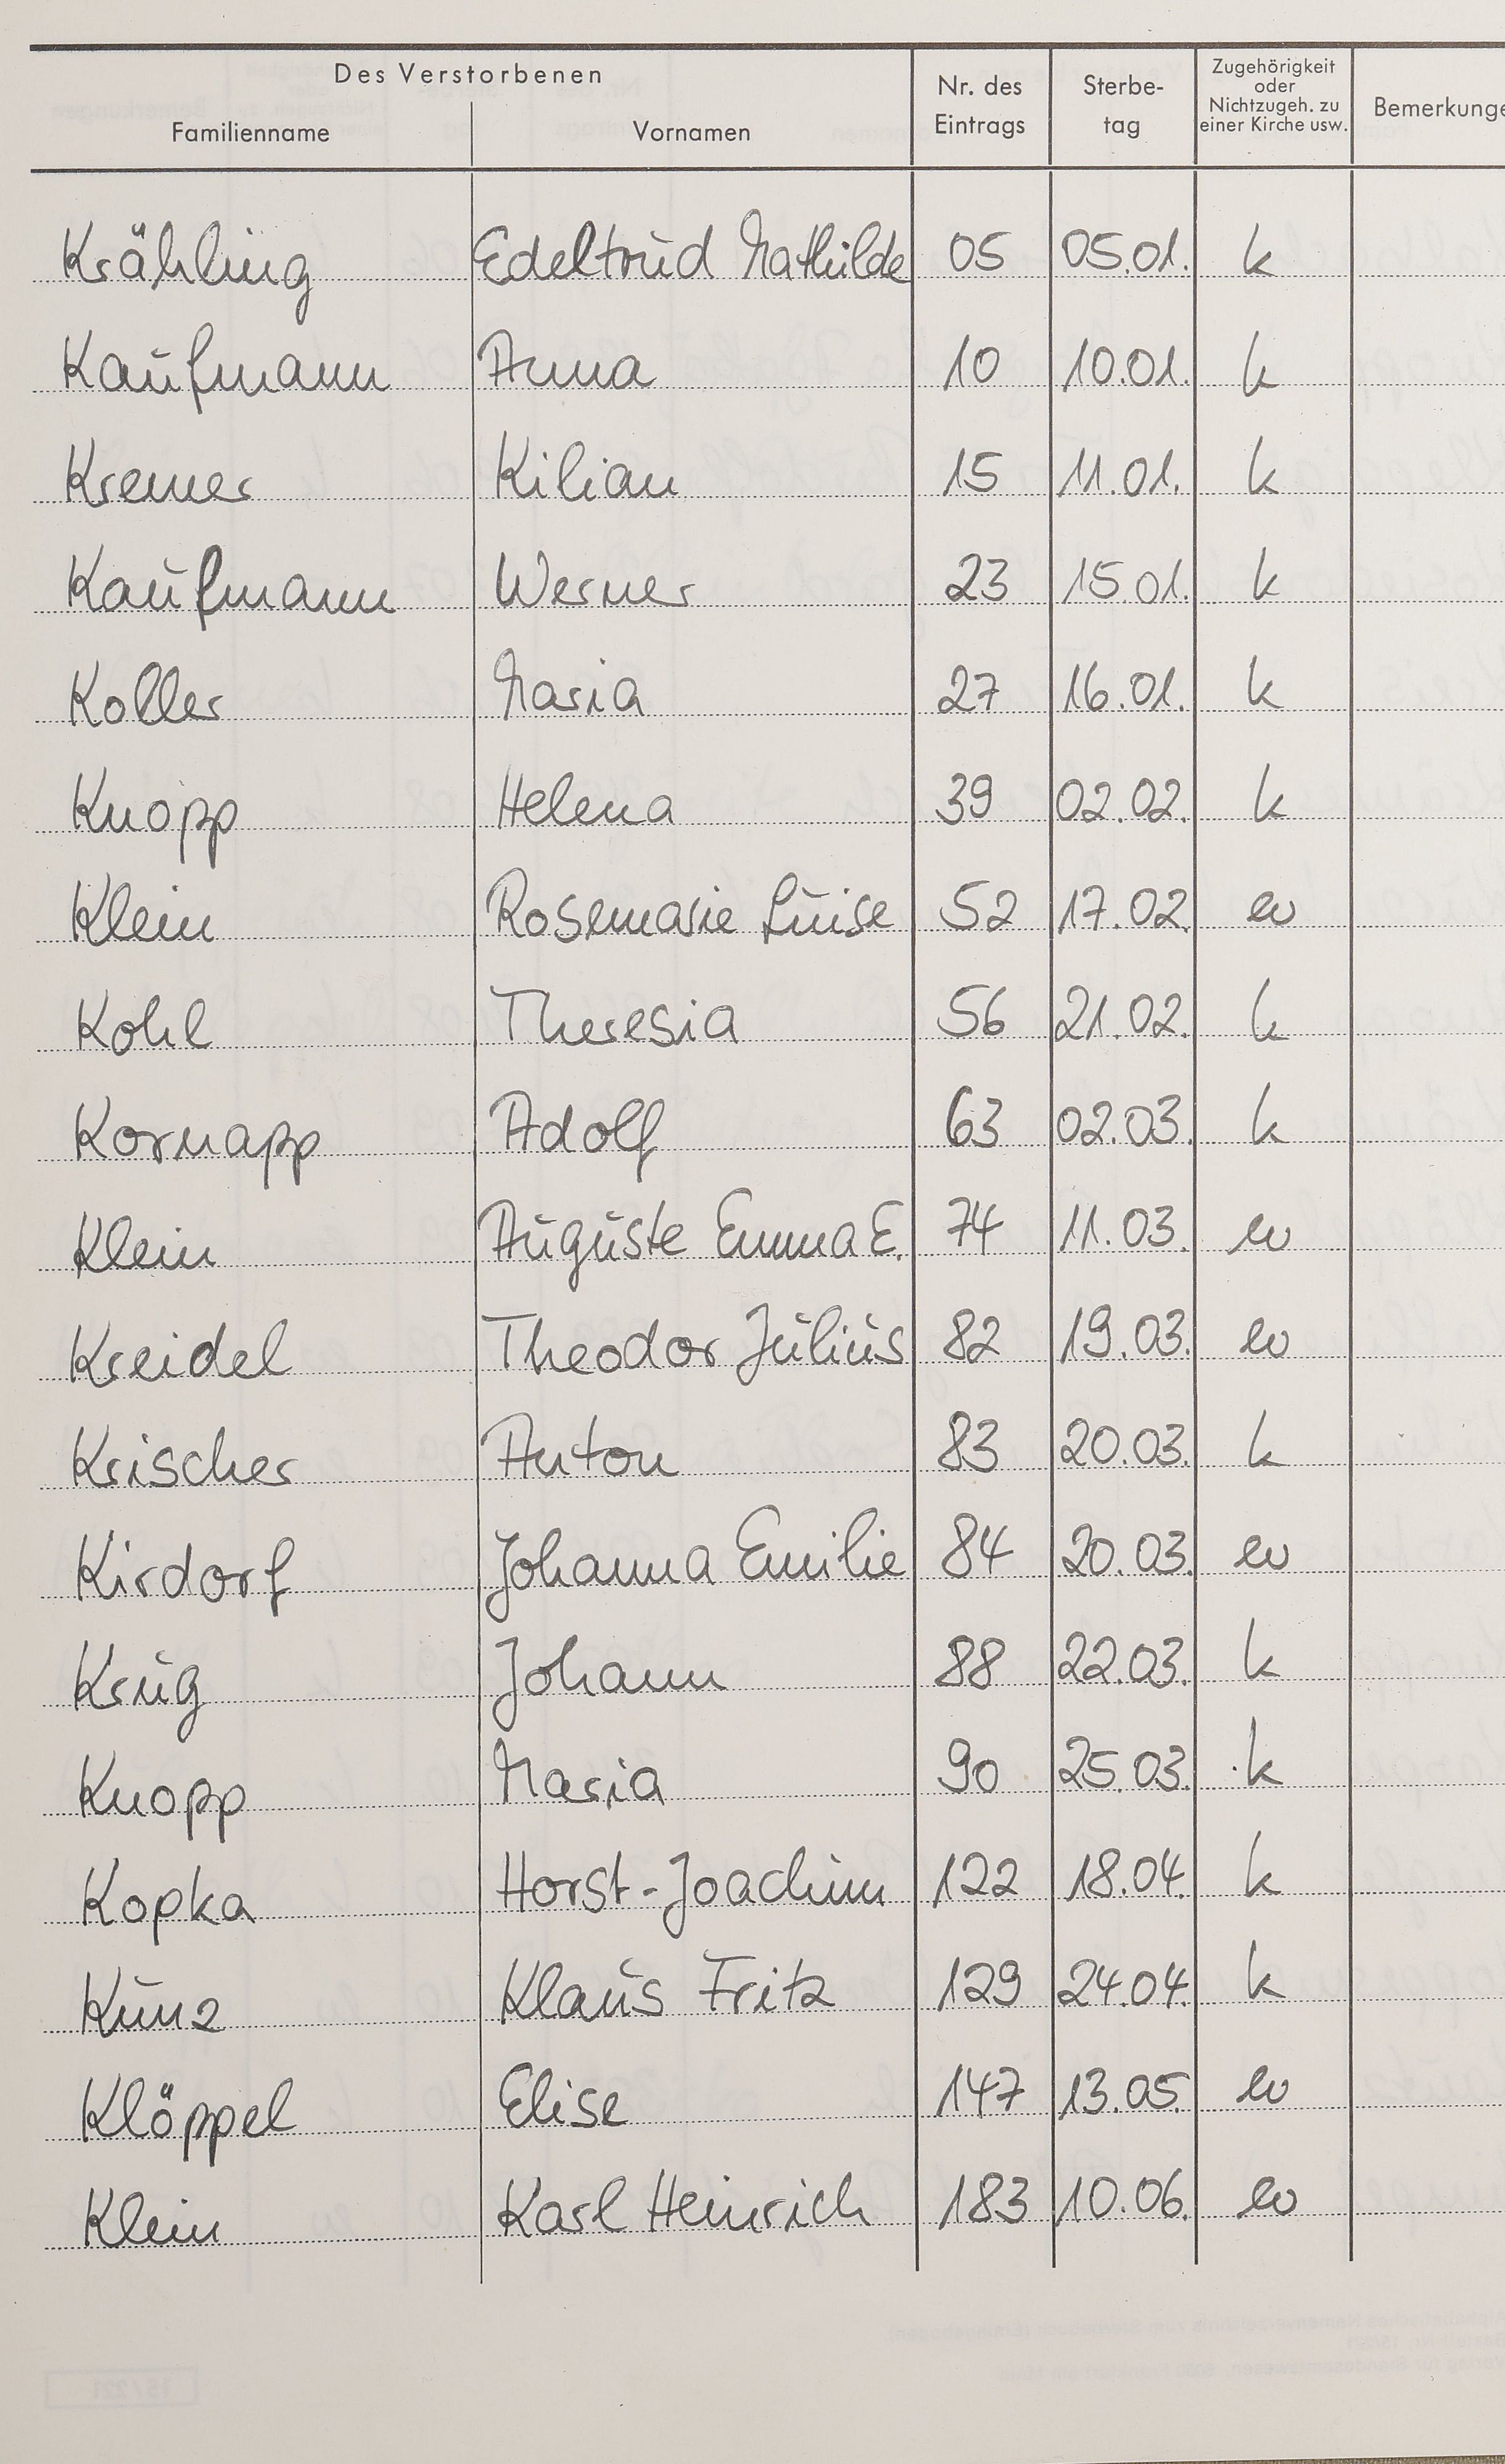 Des Verstorbenen
Familienname Vornamen Nr. des Eintrags Sterbe-tag Zugehörigkeit oder Nichtzugeh. zu einer Kirche usw. Bemerkunge
Krähling Edeltrud Mathilde 05 05.01. k
Kaufmann Anna 10 10.01. k
Kremer Kilian 15 11.01. k
Kaufmann Werner 23 15.01. k
Koller Maria 27 16.01. k
Knopp Helena 39 02.02. k
Klein Rosemarie Luise 52 17.02. ev
Kohl Theresia 56 21.02. k
Kornapp Adolf 63 02.03. k
Klein Auguste Emma E. 74 11.03. ev
Kreidel Theodor Julius 82 19.03. ev
Krischer Anton 83 20.03. k
Kirdorf Johanna Emilie 84 20.03. ev
Krug Johann 88 22.03. k
Knopp Maria 90 25.03. k
Kopka Horst-Joachim 122 18.04. k
Kunz Klaus Fritz 129 24.04. k
Klöppel Elise 147 13.05. ev
Klein Karl Heinrich 183 10.06. ev